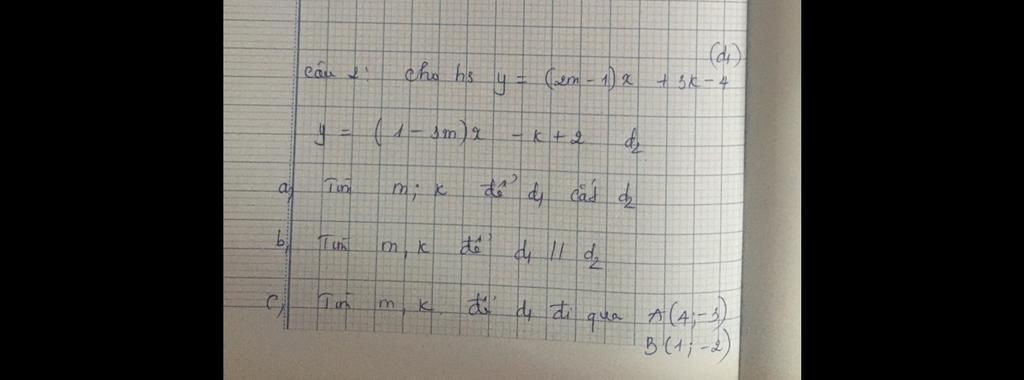 (d₁)
câu 2: cho hs y = (2m - 1)x + 3k - 4
y = (1 - 3m)x - k + 2 d₂
a, Tìm m; k để d₁ cắt d₂
b, Tìm m, k để d₁ // d₂
c, Tìm m, k để d₁ đi qua A(4; -3)
B(1; -2)